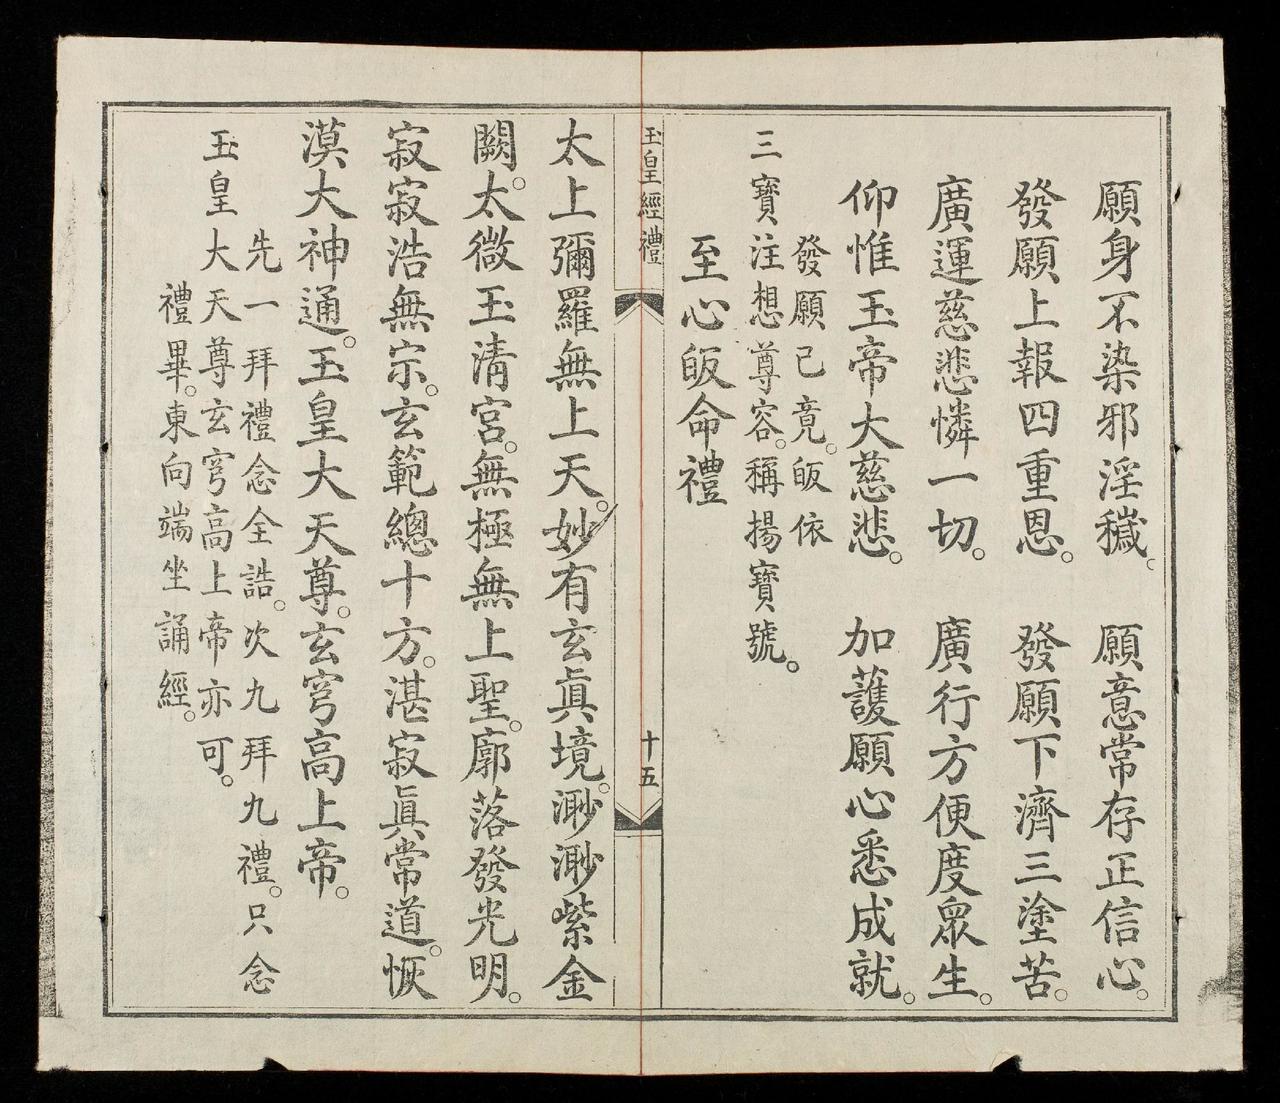 願身不染邪淫穢。　願意常存正信心。
發願上報四重恩。　發願下濟三塗苦。
廣運慈悲憐一切。　廣行方便度眾生。
仰惟玉帝大慈悲。　加護願心悉成就。
發願已竟。皈依
三寶注想尊容。稱揚寶號。
至心皈命禮
玉皇經禮
十五
太上彌羅無上天。妙有玄眞境。渺渺紫金
闕。太微玉清宮。無極無上聖。廓落發光明。
寂寂浩無宗。玄範總十方。湛寂眞常道。恢
漠大神通。玉皇大天尊。玄穹高上帝。
先一拜禮念全誥。次九拜九禮。只念
玉皇大天尊玄穹高上帝亦可。
禮畢。東向端坐誦經。